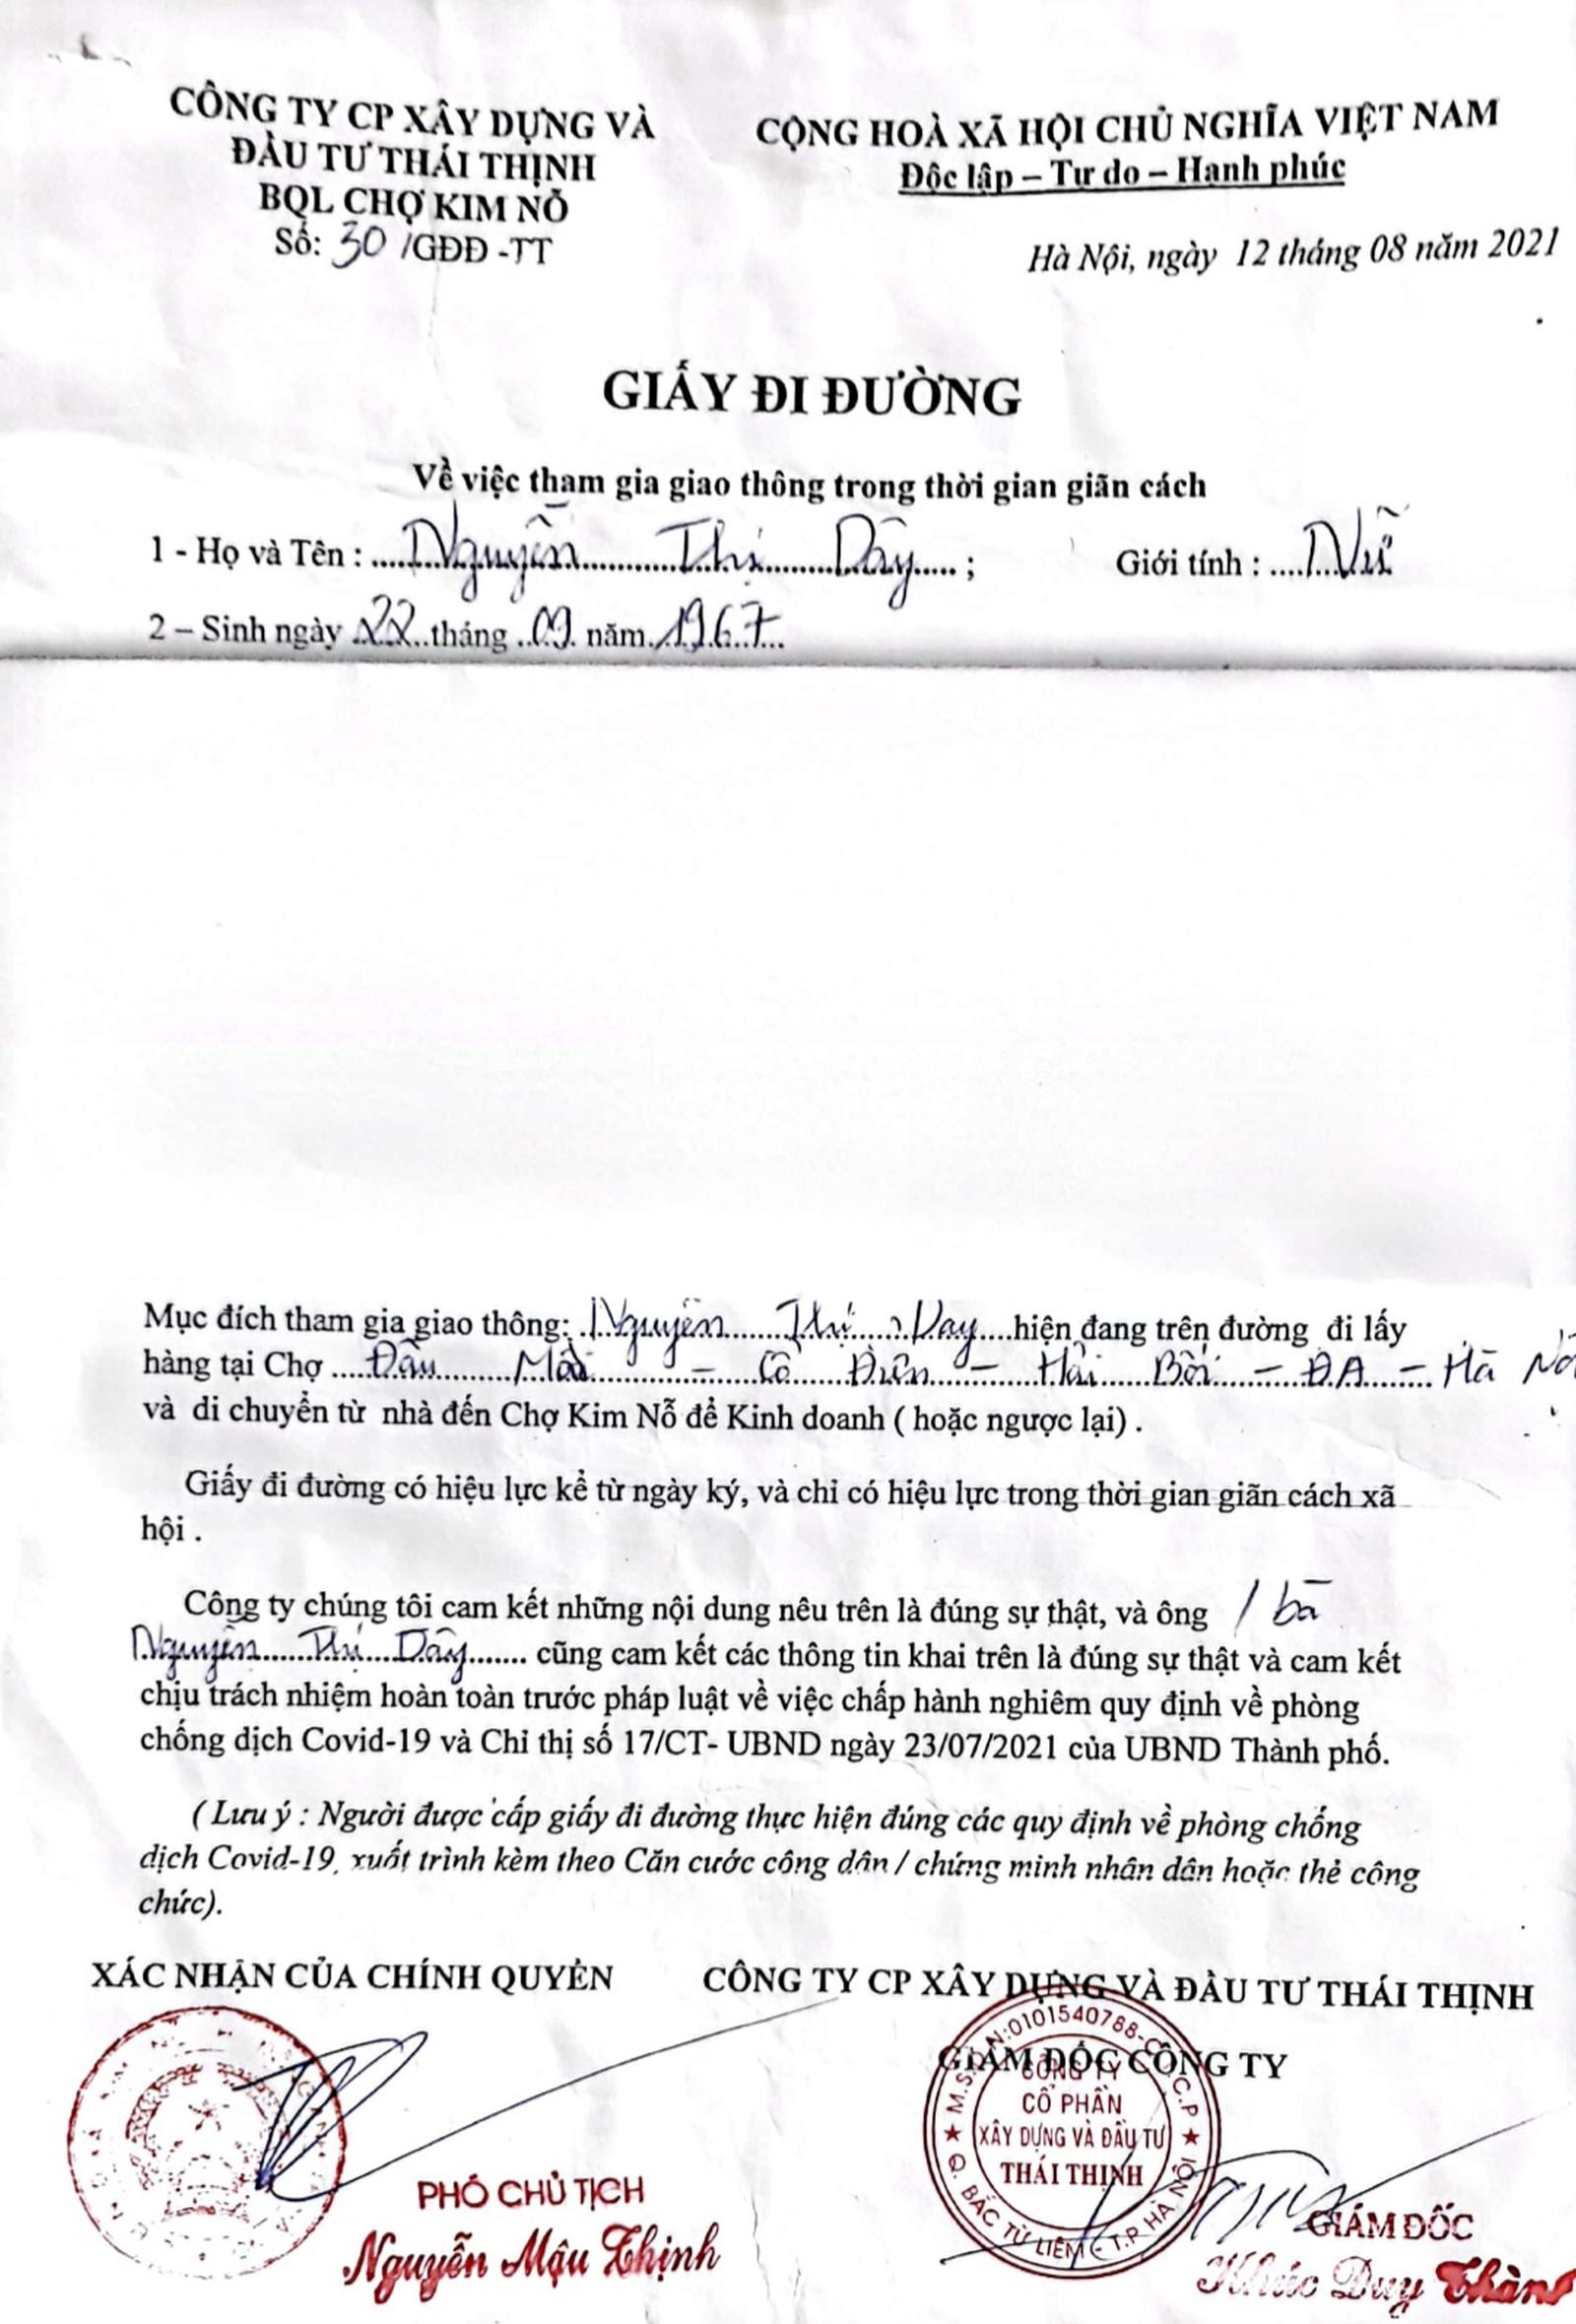 CÔNG TY CP XÂY DỰNG VÀ
ĐẦU TƯ THÁI THỊNH
BQL CHỢ KIM NỖ
Số: 30 /GĐĐ -TT
CỘNG HOÀ XÃ HỘI CHỦ NGHĨA VIỆT NAM
Độc lập – Tự do – Hạnh phúc
Hà Nội, ngày 12 tháng 08 năm 2021
GIẤY ĐI ĐƯỜNG
Về việc tham gia giao thông trong thời gian giãn cách
1 - Họ và Tên : Nguyễn Thị Dậy ; Giới tính : Nữ
2 – Sinh ngày 22 tháng 09 năm 1967
Mục đích tham gia giao thông: Nguyễn Thị Dậy hiện đang trên đường đi lấy
hàng tại Chợ Đầu Mối - Cổ Điển - Hải Bối - ĐA - Hà Nội
và di chuyển từ nhà đến Chợ Kim Nỗ để Kinh doanh ( hoặc ngược lại) .
Giấy đi đường có hiệu lực kể từ ngày ký, và chỉ có hiệu lực trong thời gian giãn cách xã
hội .
Công ty chúng tôi cam kết những nội dung nêu trên là đúng sự thật, và ông / bà
Nguyễn Thị Dậy cũng cam kết các thông tin khai trên là đúng sự thật và cam kết
chịu trách nhiệm hoàn toàn trước pháp luật về việc chấp hành nghiêm quy định về phòng
chống dịch Covid-19 và Chỉ thị số 17/CT- UBND ngày 23/07/2021 của UBND Thành phố.
( Lưu ý : Người được cấp giấy đi đường thực hiện đúng các quy định về phòng chống
dịch Covid-19, xuất trình kèm theo Căn cước công dân / chứng minh nhân dân hoặc thẻ công
chức).
XÁC NHẬN CỦA CHÍNH QUYỀN
CÔNG TY CP XÂY DỰNG VÀ ĐẦU TƯ THÁI THỊNH
GIÁM ĐỐC CÔNG TY
M.S.D.N:0101540788-C.T.C.P
CÔNG TY
CỔ PHẦN
XÂY DỰNG VÀ ĐẦU TƯ
THÁI THỊNH
Q. BẮC TỪ LIÊM - T.P HÀ NỘI
PHÓ CHỦ TỊCH
Nguyễn Mậu Thịnh
GIÁM ĐỐC
Khúc Duy Thành